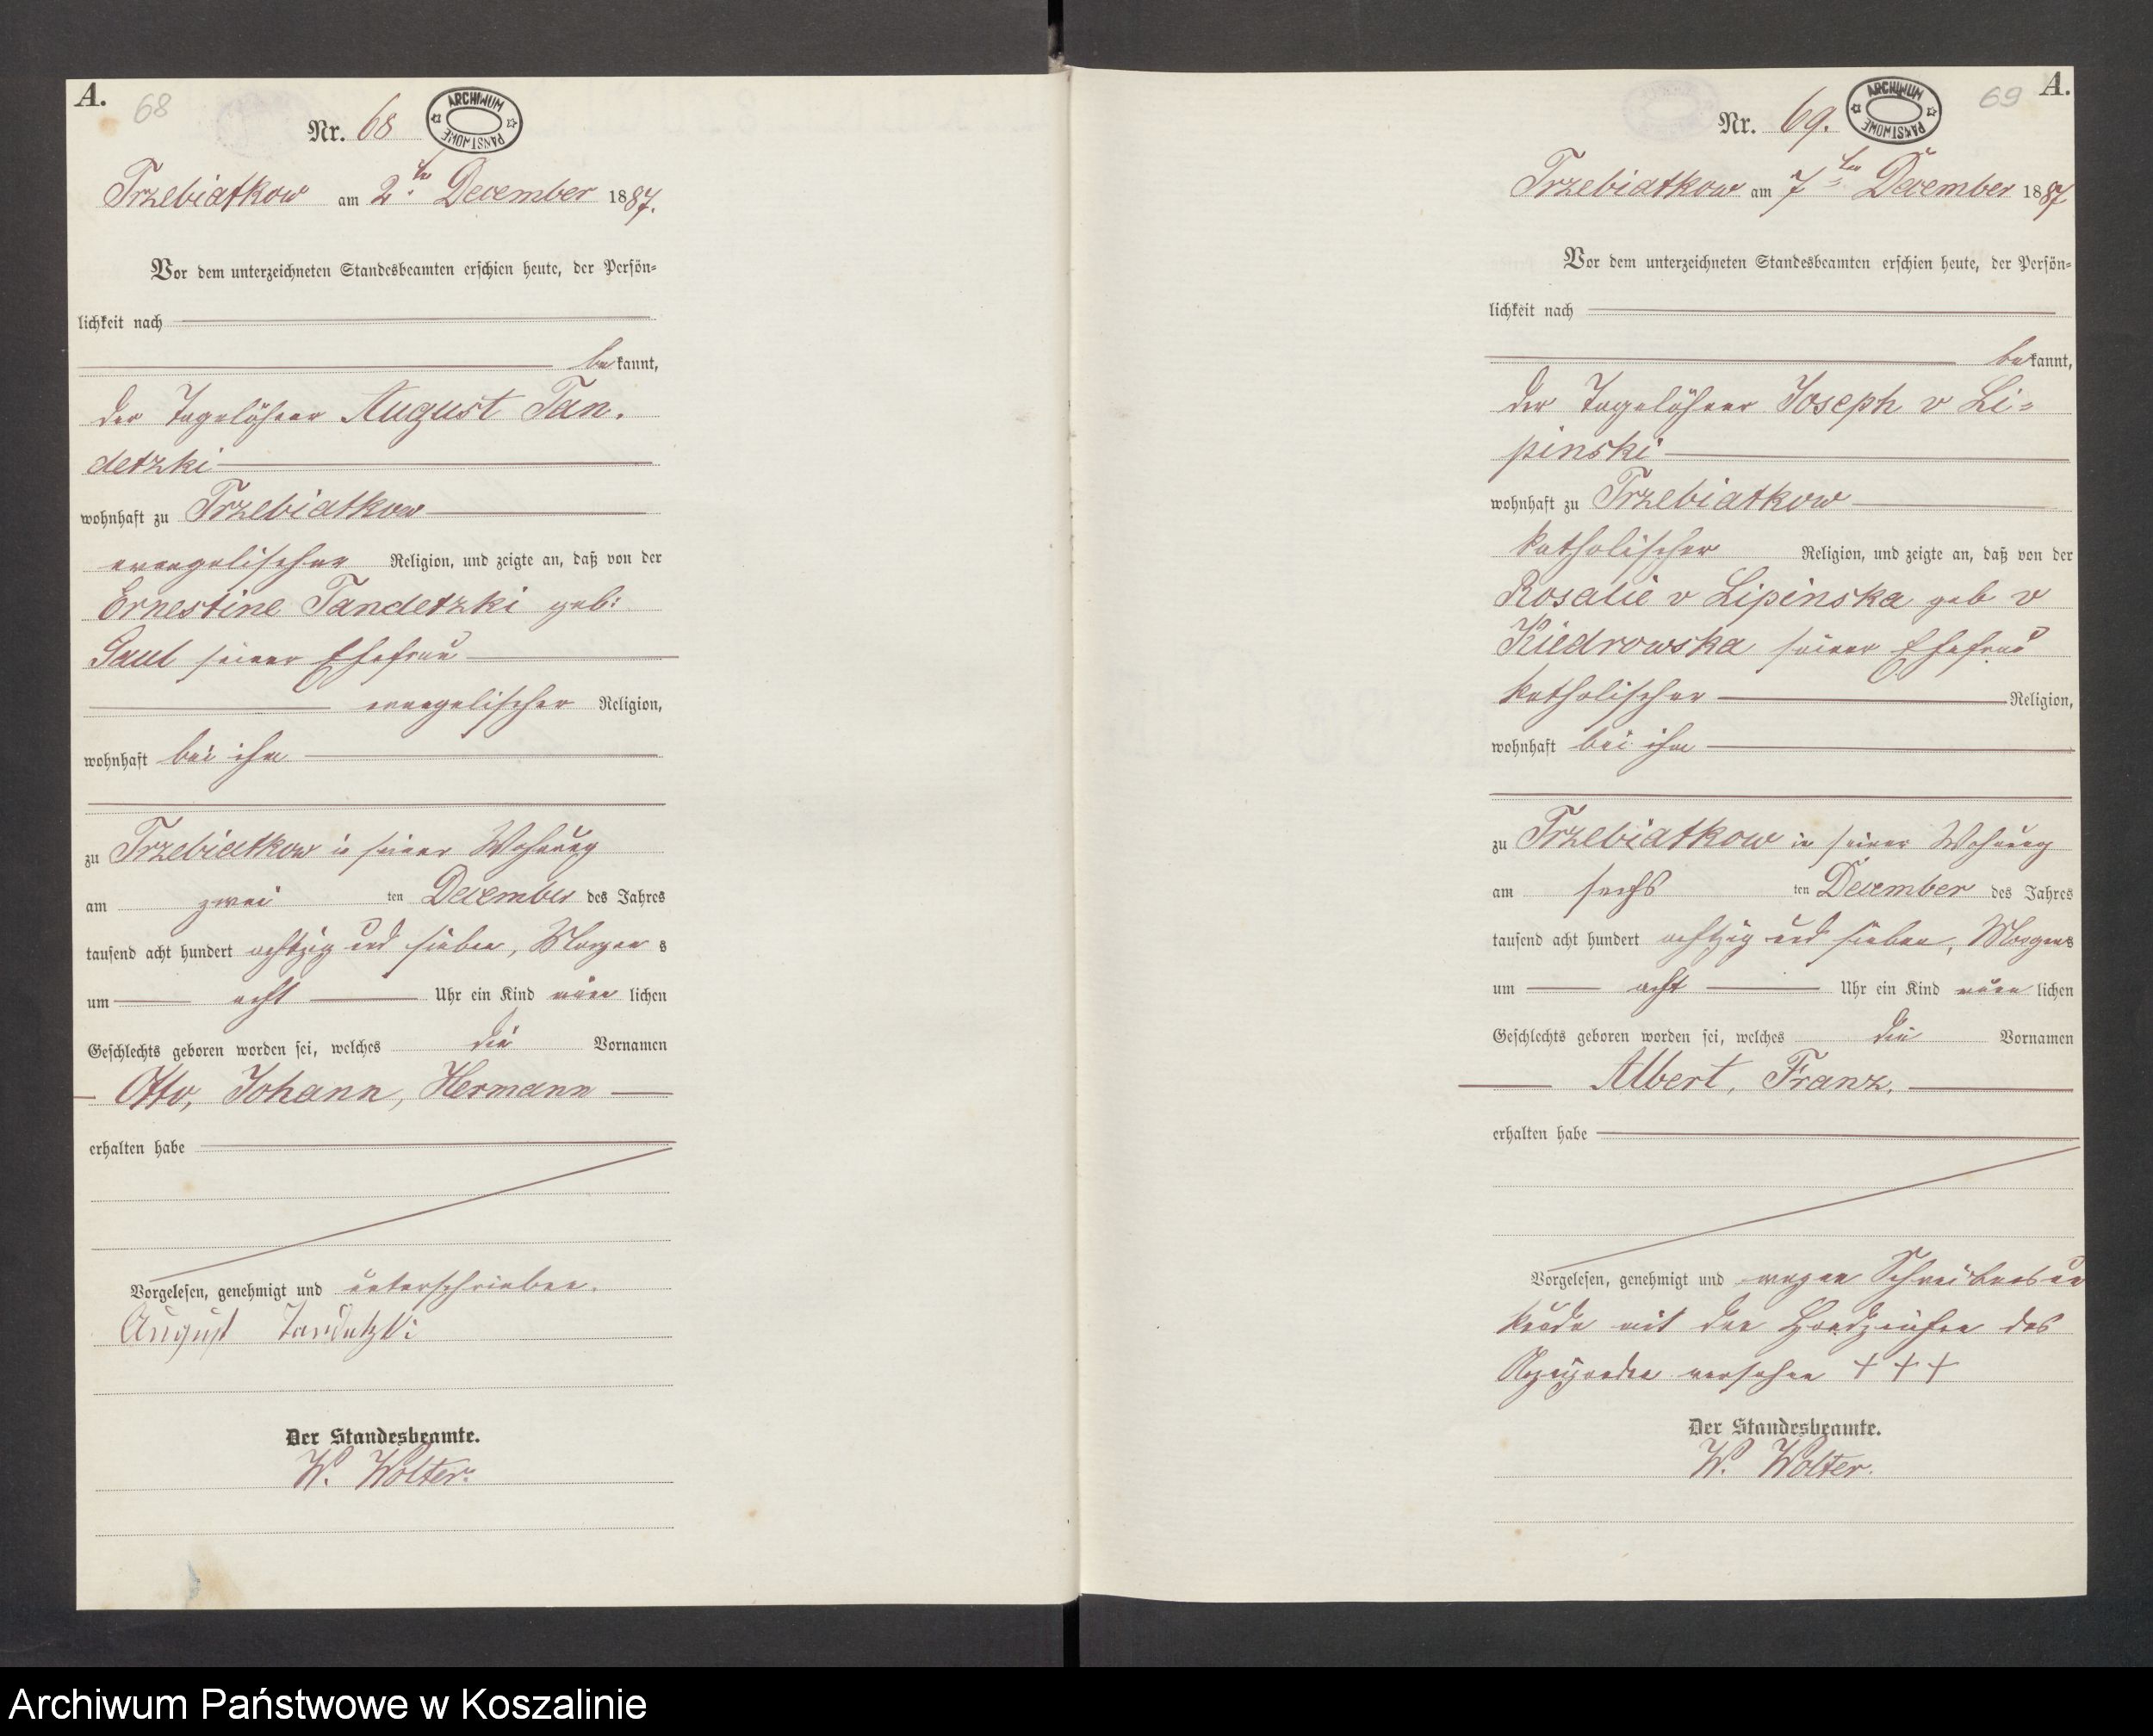 A.
68
Nr. 68
ARCHIWUM PAŃSTWOWE
Trzebiatkow am 2ten December 1887.
Vor dem unterzeichneten Standesbeamten erschien heute, der Persön=
lichkeit nach
bekannt,
der Tagelöhner August Tan.
detzki
wohnhaft zu Trzebiatkow
evangelischer Religion, und zeigte an, daß von der
Ernestine Tandetzki geb:
seiner Ehefrau
evangelischer Religion,
wohnhaft bei ihm
zu Trzebiatkow in seiner Wohnung
am zwei ten December des Jahres
tausend acht hundert achtzig und sieben, Morgens
um acht Uhr ein Kind männlichen
Geschlechts geboren worden sei, welches die Vornamen
Otto, Johann, Hermann
erhalten habe
Vorgelesen, genehmigt und unterschrieben.
August Tandetzki
Der Standesbeamte.
W. Wolter.
A.
69
Nr. 69.
ARCHIWUM PAŃSTWOWE
Trzebiatkow am 7ten December 1887
Vor dem unterzeichneten Standesbeamten erschien heute, der Persön=
lichkeit nach
bekannt,
der Tagelöhner Joseph v Li=
pinski
wohnhaft zu Trzebiatkow
katholischer Religion, und zeigte an, daß von der
Rosalie v Lipinska geb v
Kiedrowska seiner Ehefrau
katholischer Religion,
wohnhaft bei ihm
zu Trzebiatkow in seiner Wohnung
am sechs ten December des Jahres
tausend acht hundert achtzig und sieben, Morgens
um acht Uhr ein Kind männlichen
Geschlechts geboren worden sei, welches die Vornamen
Albert, Franz,
erhalten habe
Vorgelesen, genehmigt und wegen Schreibensun
kunde mit den Handzeichen des
Anzeigenden versehen + + +
Der Standesbeamte.
W. Wolter.
Archiwum Państwowe w Koszalinie